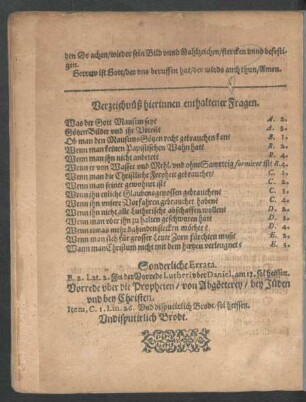 den Drachen/wieder sein Bild vnnd Mahlzeichen/stercken vnnd befesti-
gen.
Getrew ist Gott/der vns beruffen hat/der wirds auch thun/Amen.
Verzeichnüß hierinnen enthaltener Fragen.
Was der Gott Mausim seye A. 2.
Götzen Bilder vnd ihr Vrteil A. 3.
Ob man den Mausim-Götzen recht gebrauchen kan B. 1.
Wenn man keinen Papistischen Wahn hat B. 2.
Wenn man ihn nicht anbetet B. 4.
Wenn er von Wasser vnd Mehl/vnd ohne Sawrteig formiret ist B. 4.
Wenn man die Christliche Freyheit gebrauchet C. 1.
Wenn man seiner gewohnet ist C. 2.
Wenn ihn etliche Glaubensgenossen gebrauchen C. 3.
Wenn ihn vnsere Vorfahren gebrauchet haben C. 4.
Wenn ihn nicht alle Lutherische abschaffen wollen D. 2.
Wenn man vber ihn zu halten geschworen hat D. 2.
Wenn etwas mehr dahinden stecken möchte E. 2.
Wenn man sich für grosser Leute Zorn fürchten muste E. 2.
Wann man Christum nicht mit dem hertzen verleugnet E. 3.
Sonderliche Errata.
B. 2. Lat. 2. In der Vorrede Lutheri vber Daniel, am 12. sol heissen.
Vorrede vber die Propheten/von Abgötterey/bey Jüden
vnd bey Christen.
Item, C. 1. Lin. 26. Vnd disputirlich Brodt/sol heissen.
Vndisputirlich Brodt.